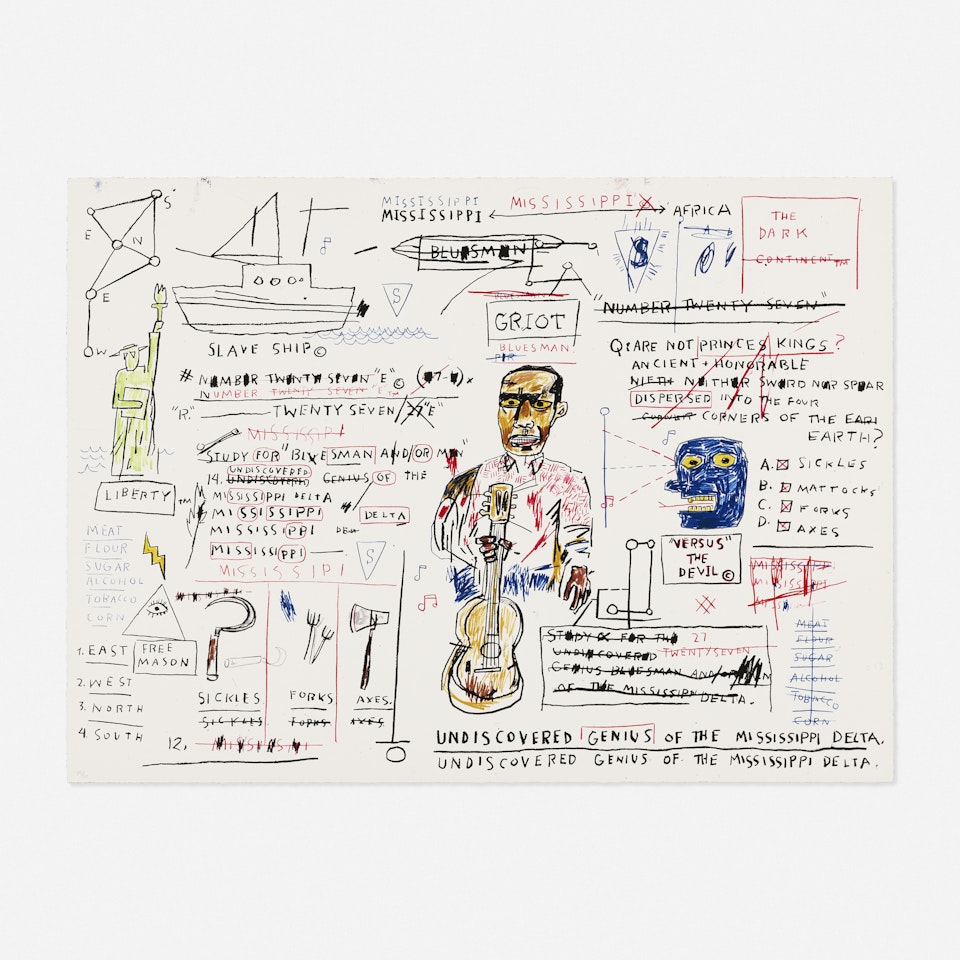 S
E
N
E
W
MISSISSIPPI
MISSISSIPPI
MISSISSIPPI
AFRICA
THE
DARK
CONTINENT™
BLUESMAN
S
S
"NUMBER TWENTY SEVEN"
GRIOT
BLUESMAN
SLAVE SHIP©
# NUMBER TWENTY SEVEN "E"©
NUMBER TWENTY SEVEN "E"™
"R." TWENTY SEVEN/27"E"
MISSISSIPI
STUDY FOR "BLUESMAN AND/OR MEN"
UNDISCOVERED
14. UNDISCOVERED GENIUS OF THE
MISSISSIPPI DELTA
MISSISSIPPI DELTA
MISSISSIPPI
MISSISSIPPI
MISSISSIPI
S
LIBERTY™
MEAT
FLOUR
SUGAR
ALCOHOL
TOBACCO
CORN
1. EAST
2. WEST
3. NORTH
4. SOUTH
FREE
MASON
SICKLES FORKS AXES.
SICKLES FORKS AXES
12.
Q: ARE NOT PRINCES KINGS?
ANCIENT + HONORABLE
NIETH NEITHER SWORD NOR SPEAR
DISPERSED INTO THE FOUR
CORNER CORNERS OF THE EARI
EARTH?
A. SICKLES
B. MATTOCKS
C. FORKS
D. AXES
"VERSUS"
THE
DEVIL©
MISSISSIPPI
MISSISSIPPI
MEAT
FLOUR
SUGAR
ALCOHOL
TOBACCO
CORN
STUDY FOR THE 27
UNDISCOVERED TWENTYSEVEN
GENIUS BLUESMAN AND/OR MEN
OF THE MISSISSIPPI DELTA.
UNDISCOVERED GENIUS OF THE MISSISSIPPI DELTA.
UNDISCOVERED GENIUS OF THE MISSISSIPPI DELTA.